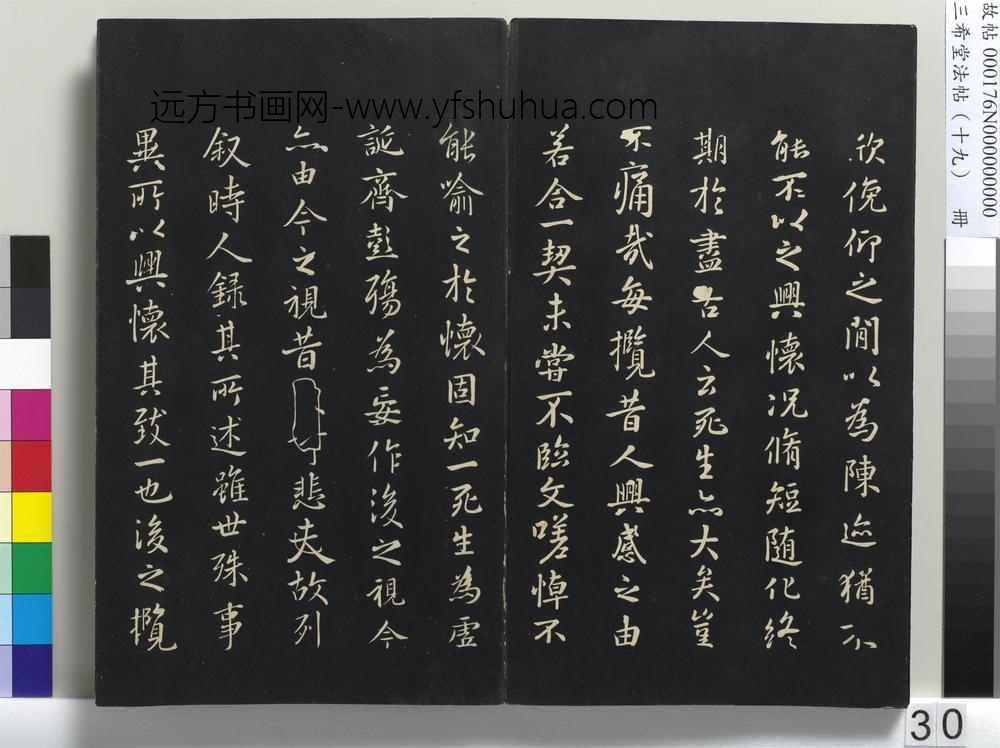 欣俛仰之閒以為陳迹猶不
能不以之興懷况脩短随化終
期於盡古人云死生亦大矣豈
不痛哉每攬昔人興感之由
若合一契未嘗不臨文嗟悼不
能喻之於懷固知一死生為虛
誕齊彭殤為妄作後之視今
亦由今之視昔悲夫故列
叙時人録其所述雖世殊事
異所以興懷其致一也後之攬
远方书画网-www.yfshuhua.com
故帖 000176N000000000
三希堂法帖（十九） 冊
30